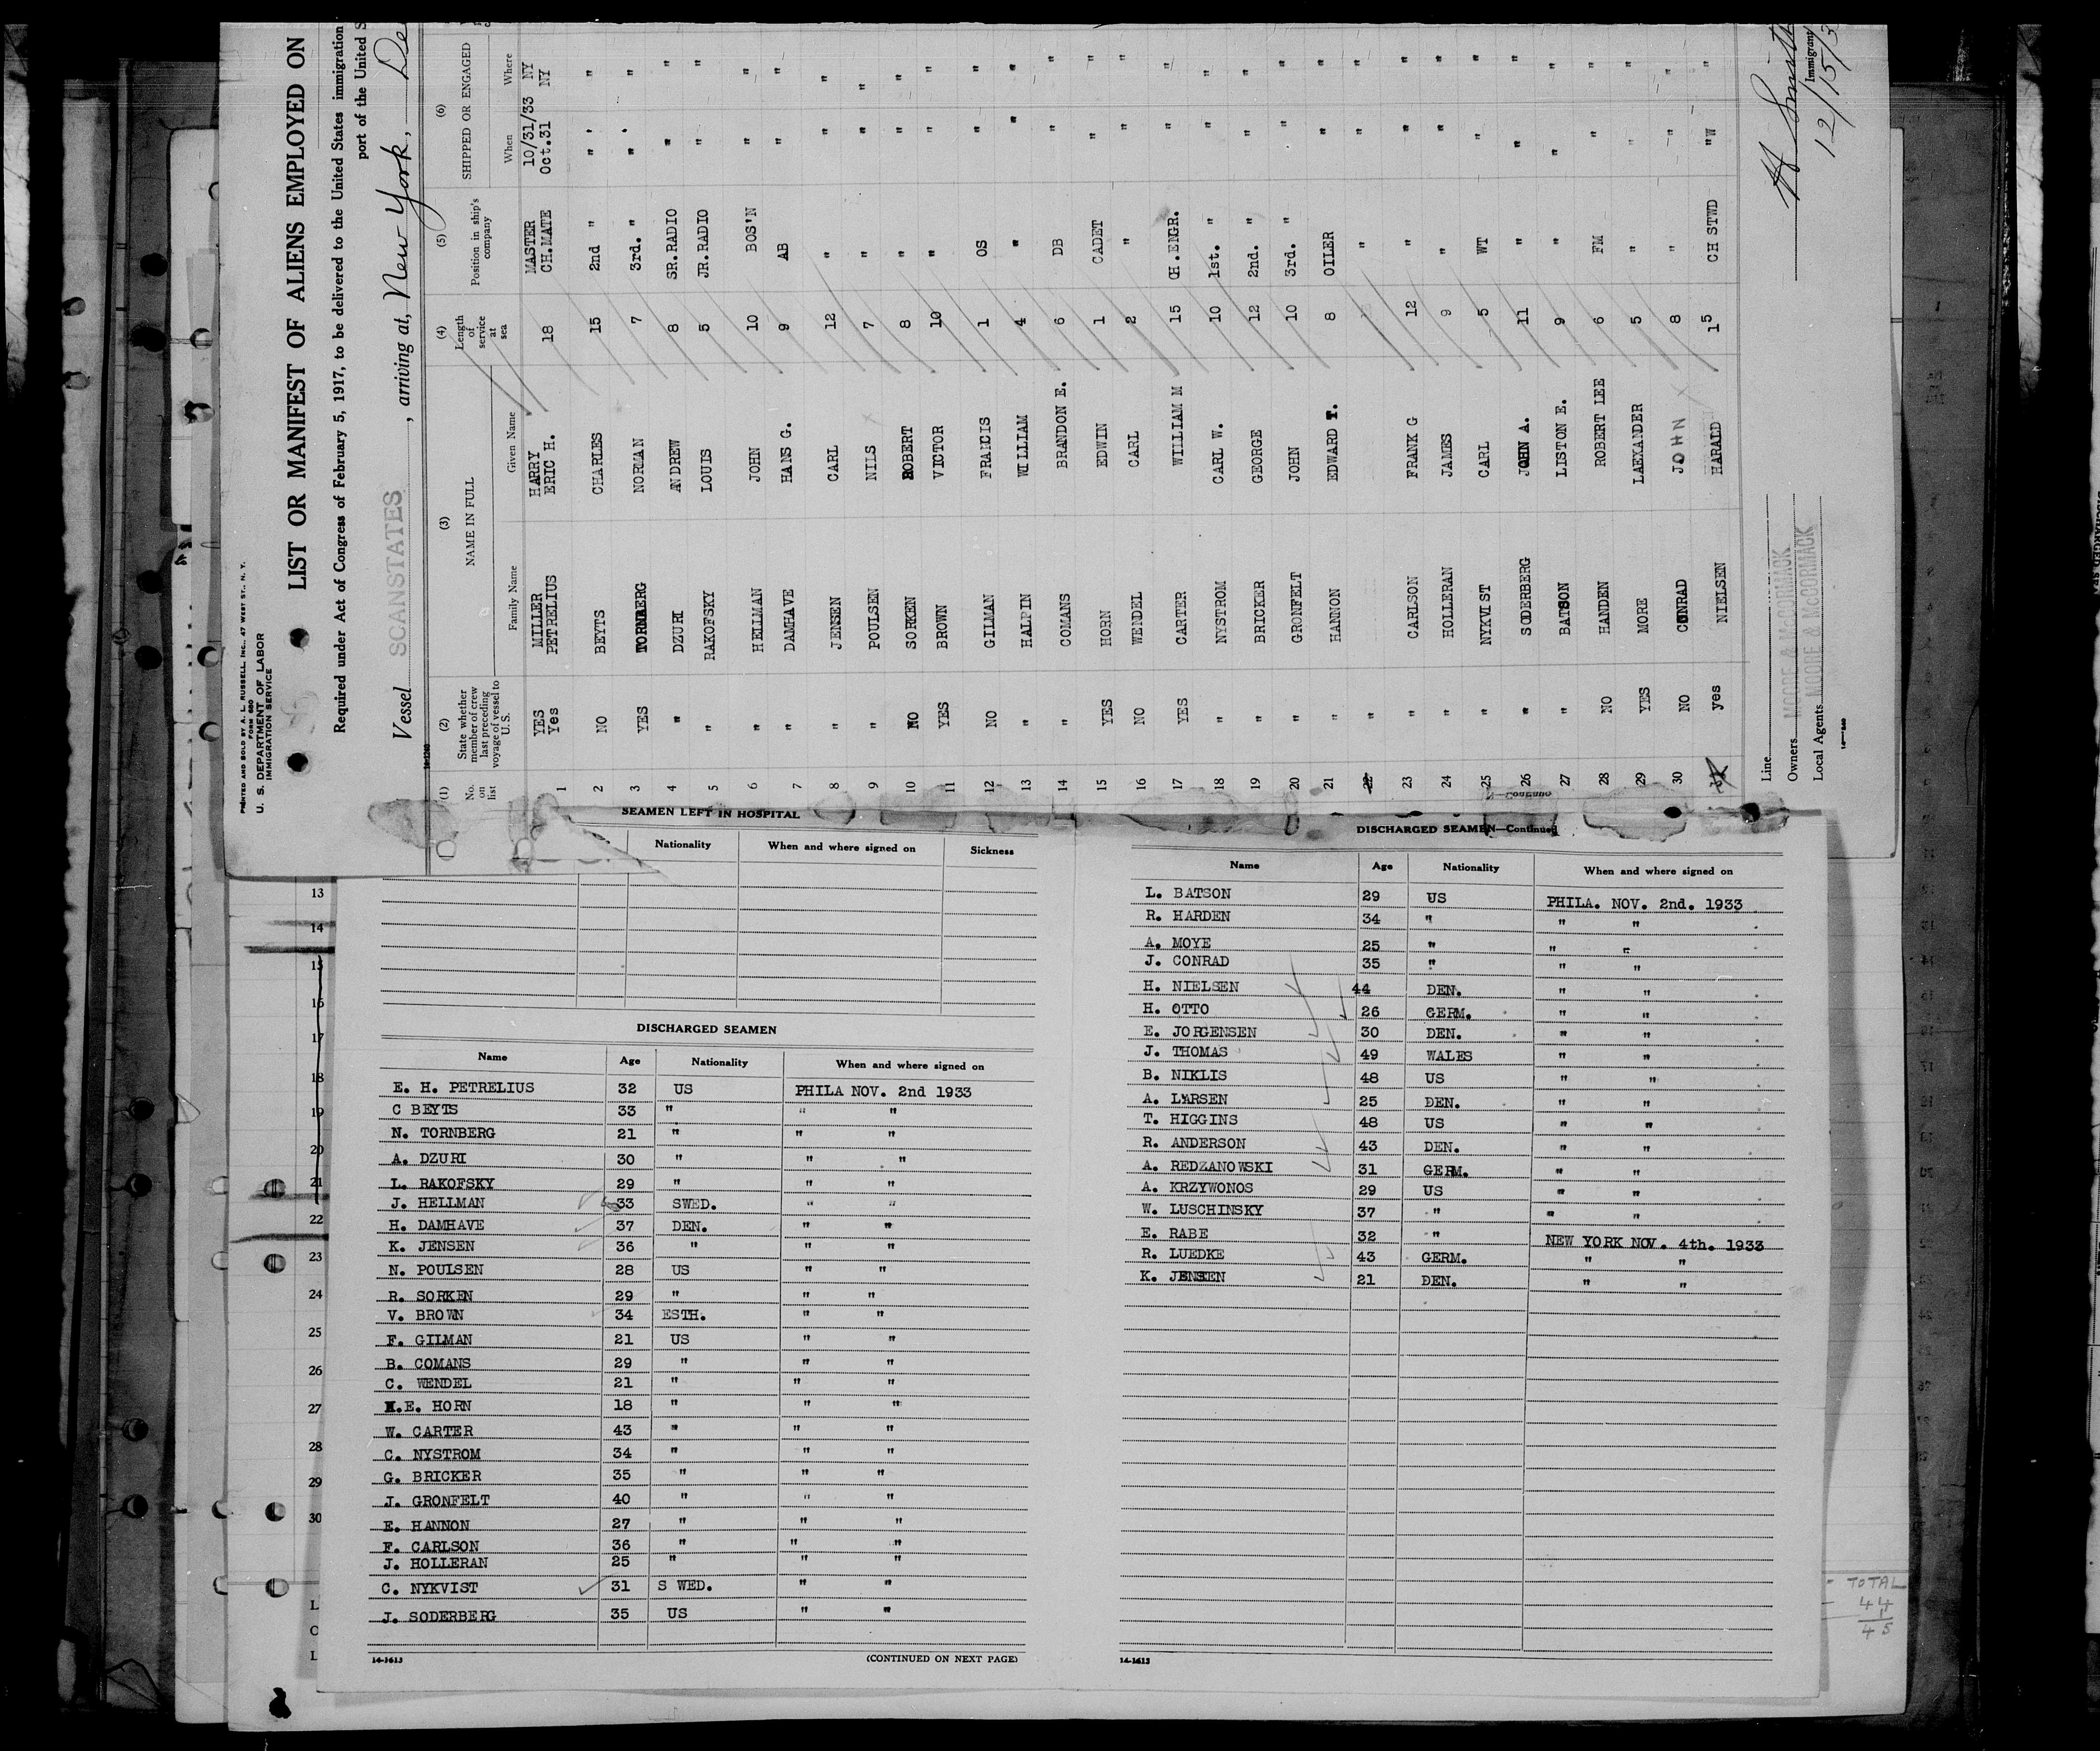 PRINTED AND SOLD BY A. L. RUSSELL, INC., 47 WEST ST., N. Y.
FORM 680
U. S. DEPARTMENT OF LABOR
IMMIGRATION SERVICE
LIST OR MANIFEST OF ALIENS EMPLOYED ON
Required under Act of Congress of February 5, 1917, to be delivered to the United States immigration
port of the United S
Vessel SCANSTATES, arriving at, New York, De
(1) (2) (3) (4) (5) (6)
No. on list State whether member of crew last preceding voyage of vessel to U. S. NAME IN FULL Length of service at sea Position in ship's company SHIPPED OR ENGAGED
Family Name Given Name When Where
YES MILLER HARRY MASTER 10/31/33 NY
1 Yes PETRELIUS ERIC H. 18 CH.MATE Oct.31 NY
2 NO BEYTS CHARLES 15 2nd " " " "
3 YES TORNBERG NORMAN 7 3rd. " " " "
4 " DZURI ANDREW 8 SR.RADIO " "
5 " RAKOFSKY LOUIS 5 JR.RADIO " "
6 " HELLMAN JOHN 10 BOS'N " "
7 " DAMHAVE HANS G. 9 AB " "
8 " JENSEN CARL 12 " " "
9 " POULSEN NILS 7 " " "
10 NO SORKEN ROBERT 8 " " "
11 YES BROWN VICTOR 10 " " "
12 NO GILMAN FRANCIS 1 OS " "
13 " HALPIN WILLIAM 4 " " "
14 " COMANS BRANDON E. 6 DB " "
15 YES HORN EDWIN 1 CADET " "
16 NO WENDEL CARL 2 " " "
17 YES CARTER WILLIAM M 15 CH.ENGR. " "
18 " NYSTROM CARL W. 10 1st. " " "
19 " BRICKER GEORGE 12 2nd. " " "
20 " GRONFELT JOHN 10 3rd. " " "
21 " HANNON EDWARD T. 8 OILER " "
22 " " " "
23 " CARLSON FRANK G 12 " " "
24 " HOLLERAN JAMES 9 " " "
25 " NYKVIST CARL 5 WT " "
26 " SODERBERG JOHN A. 11 " " "
27 " BATSON LISTON E. 9 " " "
28 NO HANDEN ROBERT LEE 6 FM " "
29 YES MORE LAEXANDER 5 " " "
30 NO CONRAD JOHN 8 " " "
yes NIELSEN HARALD 15 CH STWD "W "
Line
Owners MOORE & McCORMACK
Local Agents MOORE & McCORMACK
H Smith
Immigrant
12/15/3
SEAMEN LEFT IN HOSPITAL
Nationality When and where signed on Sickness
DISCHARGED SEAMEN
Name Age Nationality When and where signed on
E. H. PETRELIUS 32 US PHILA NOV. 2nd 1933
C BEYTS 33 " " "
N. TORNBERG 21 " " "
A. DZURI 30 " " "
L. RAKOFSKY 29 " " "
J. HELLMAN 33 SWED. " "
H. DAMHAVE 37 DEN. " "
K. JENSEN 36 " " "
N. POULSEN 28 US " "
R. SORKEN 29 " " "
V. BROWN 34 ESTH. " "
F. GILMAN 21 US " "
B. COMANS 29 " " "
C. WENDEL 21 " " "
E. HORN 18 " " "
W. CARTER 43 " " "
C. NYSTROM 34 " " "
G. BRICKER 35 " " "
J. GRONFELT 40 " " "
E. HANNON 27 " " "
F. CARLSON 36 " " "
J. HOLLERAN 25 " " "
C. NYKVIST 31 S WED. " "
J. SODERBERG 35 US " "
14-1613 (CONTINUED ON NEXT PAGE)
DISCHARGED SEAMEN—Continued
Name Age Nationality When and where signed on
L. BATSON 29 US PHILA. NOV. 2nd. 1933
R. HARDEN 34 " " "
A. MOYE 25 " " "
J. CONRAD 35 " " "
H. NIELSEN 44 DEN. " "
H. OTTO 26 GERM. " "
E. JORGENSEN 30 DEN. " "
J. THOMAS 49 WALES " "
B. NIKLIS 48 US " "
A. LARSEN 25 DEN. " "
T. HIGGINS 48 US " "
R. ANDERSON 43 DEN. " "
A. REDZANOWSKI 31 GERM. " "
A. KRZYWONOS 29 US " "
W. LUSCHINSKY 37 " " "
E. RABE 32 " NEW YORK NOV. 4th. 1933
R. LUEDKE 43 GERM. " "
K. JENSEN 21 DEN. " "
14-1613
13
14
15
16
17
18
19
20
21
22
23
24
25
26
27
28
29
30
L
O
L
- TOTAL
44
1
45